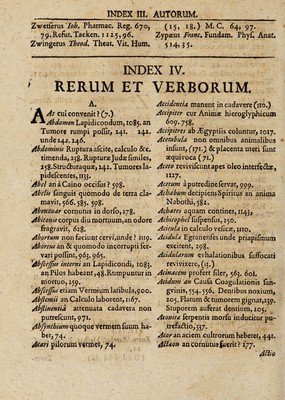 INDEX III. AUTORUM.
Zwetserus Joh. Pharmac. Reg. 670,
79. Refut. Tacken. 1125, 96.
Zwingerus Theod. Theat. Vit. Hum.
(15, 18.) M. C. 64, 97.
Zypæus Franc. Fundam. Phys. Anat.
514, 35.
INDEX IV.
RERUM ET VERBORUM.
A.
A At cui convenit? (7.)
Abdomen Lapidicondum, 1085. an
Tumore rumpi possit, 241. 242.
unde 242. 246.
Abdominis Ruptura ascite, calculo &c.
timenda, 238. Rupturæ Judæ similes,
238. Structura quæ, 242. Tumores la-
pidescentes, 1133.
Abel an à Caino occisus? 598.
Abelis sanguis quomodo de terra cla-
mavit, 566. 585. 598.
cornutus in dorso, 278.
corpus diu mortuum, an odore
fragravit, 628.
Abortum non faciunt cervi, unde? 1119.
an & quomodo incorrupti ser-
vari possint, 963. 965.
Abscessus interni an Lapidicondi, 1083.
an Pilos habeant, 48. Rumpuntur in
mortuo, 159.
Abscessu etiam Vermium latibula, 500.
Abstemii an Calculo laborent, 1167.
Abstinentiâ attenuata cadavera non
putrescunt, 971.
Absynthium quoque vermem suum ha-
bet, 74.
Acari pilorum vermes, 74.
Accidentia manent in cadavere (110.)
Accipiter cur Animæ hieroglyphicum
609. 758.
Accipitres ab Ægyptiis coluntur, 1027.
Acetabula non omnibus animalibus
insunt, (171.) & placenta uteri sunt
æquivoca (71.)
Aceto reviviscunt apes oleo interfectæ,
1127.
Acetum à putredine servat, 999.
decipiens Spiritus an anima
Nabothi, 552.
aquam contines, 1143.
suspensio, 250.
Acicula in calculo vesicæ, 1110.
Acidula Egranenses unde priapismum
excitent, 298.
Acidularum exhalationibus suffocati
reviviscere, (11.)
Acinacem profert siler, 563. 601.
Acidum an Causa Coagulationis san-
guinis, 554. 556. Dentibus noxium,
105. Flatum & tumorem gignat, 139.
Stuporem auferat dentium, 105.
Aconiæ serpentis morsu inducitur pu-
trefactio, 337.
Acor an aciem cultrorum hebetet, 441.
Actæon an cornutus fuerit? 277.
Actio